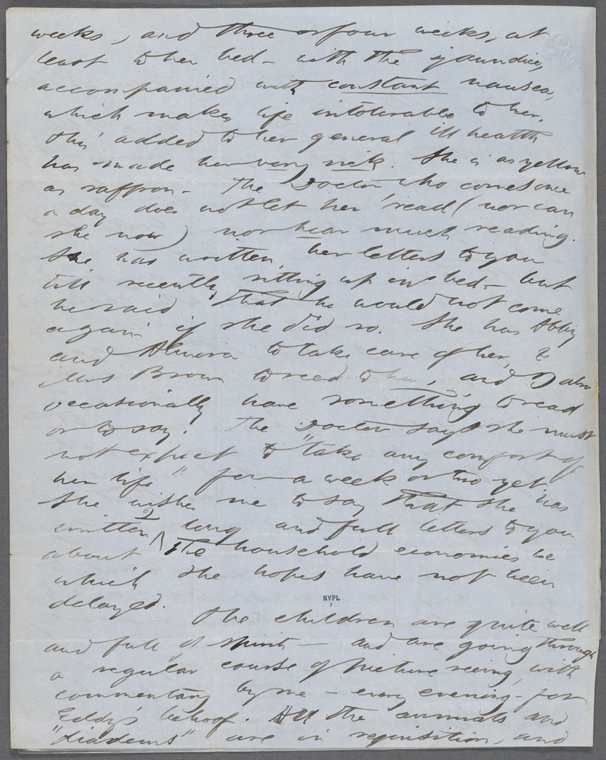 weeks, and three or four weeks, at
least to her bed – with the jaundice,
accompanied with constant nausea,
which makes life intolerable to her.
this added to her general ill health
has made her very sick. She is as yellow
as saffron – The Doctor who comes once
a day does not let her read (nor can
she now) nor hear much reading.
She has written her letters to you
till recently sitting up in bed – but
he said that he would not come
again if she did so. She has Abby
and Almira to take care of her, &
Mrs Brown to read to her, and I also
occasionally have something to read
or to say. The Doctor says she must
not expect to "take any comfort of
her life" for a week or two yet.
She wishes me to say that she has
written 2 long and full letters to you
about the household economies &c
which she hopes have not been
delayed.
NYPL
The children are quite well
and full of spirits – and are going through
a regular course of picture seeing, with
commentary by me – every evening – for
Eddy's behoof. All the animals and
"diadems" are in requisition, and